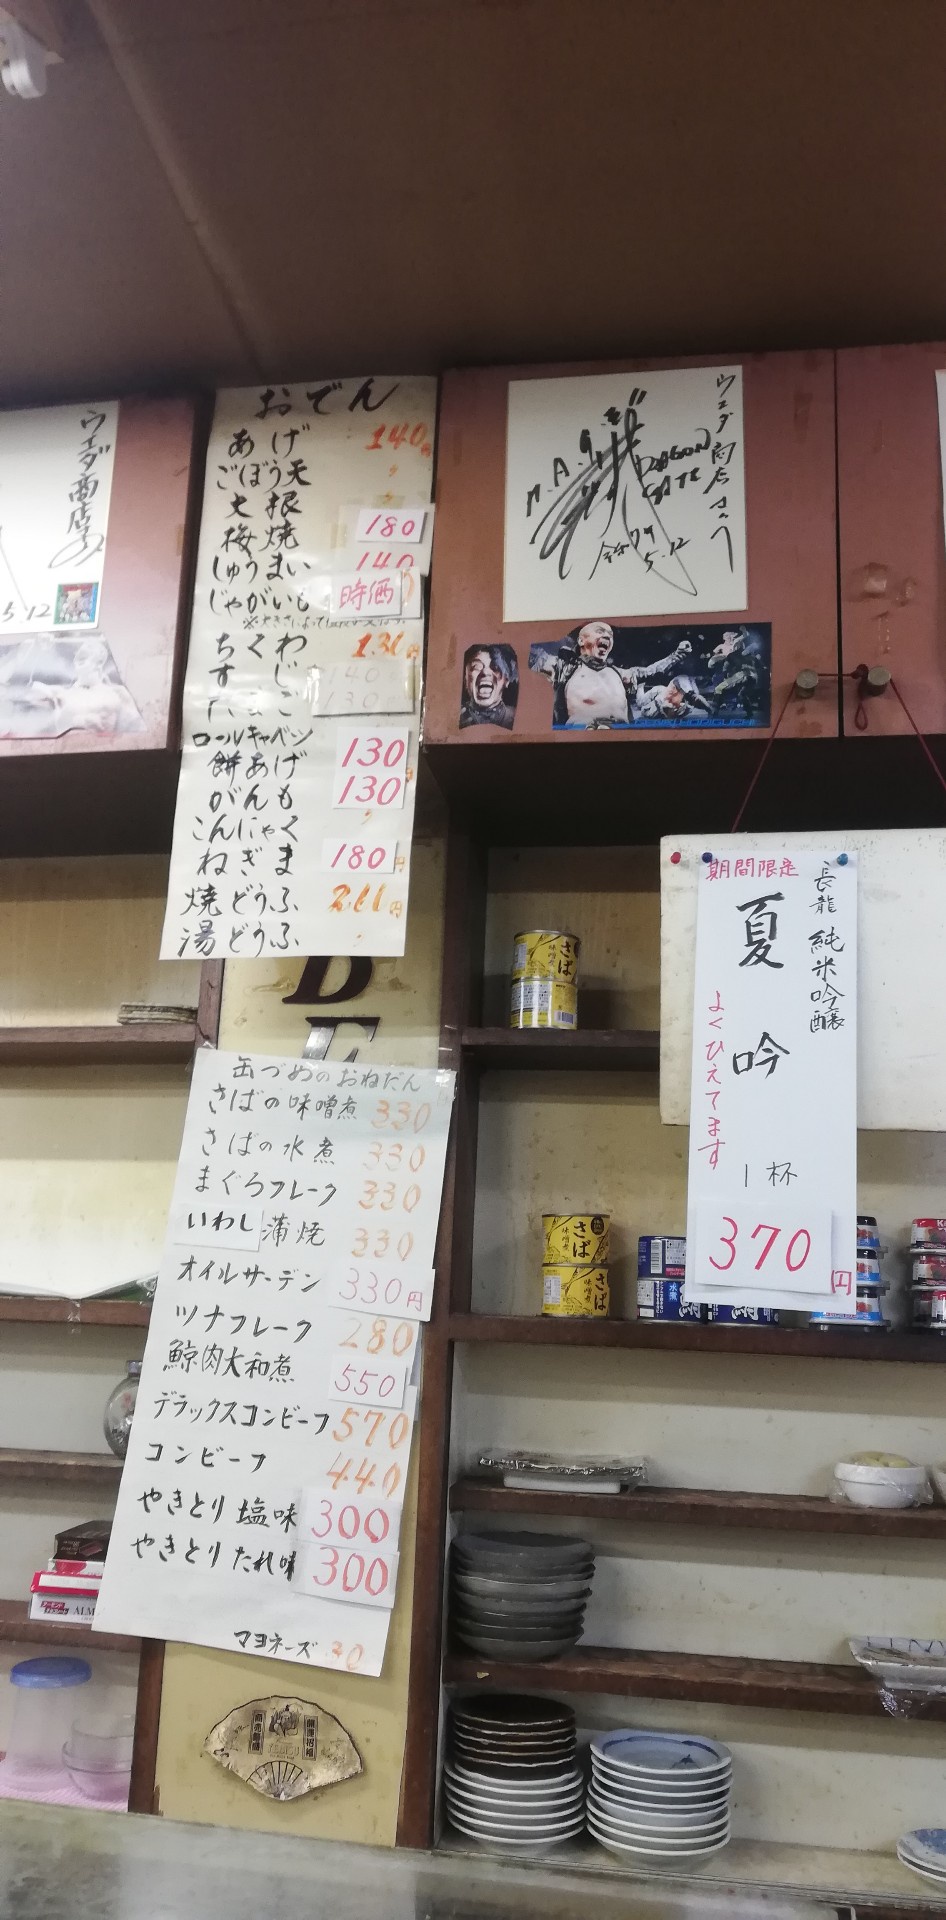 ウエダ商店さん
5.12
おでん
あげ 140円
ごぼう天 〃
大根 〃
梅焼 180
しゅうまい 140
じゃがいも 時価
※大きさによって
ちくわ 130円
すじ 140
たまご 130
ロールキャベツ
餅あげ 130
がんも 130
こんにゃく 〃
ねぎま 180円
焼どうふ 円
湯どうふ 〃
B
E
缶づめのおねだん
さばの味噌煮 330
さばの水煮 330
まぐろフレーク 330
いわし蒲焼 330
オイルサーデン 330円
ツナフレーク 280
鯨肉大和煮 550
デラックスコンビーフ 570
コンビーフ 440
やきとり塩味 300
やきとりたれ味 300
マヨネーズ 30
ウエダ商店さんへ
DRAGON
GATE
5.12
期間限定
長龍 純米吟醸
夏吟
よくひえてます
1杯
370円
さば
味噌煮
さば
味噌煮
さば
水煮